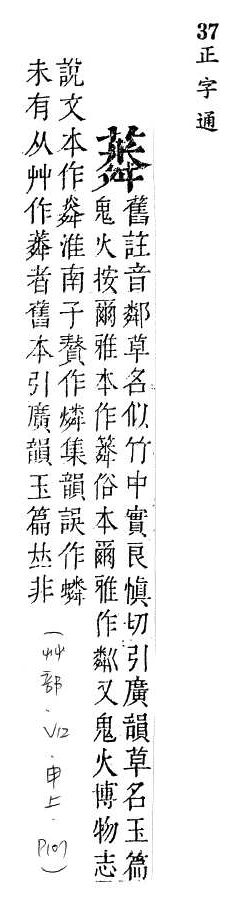 37
正字通
舊註音鄰草名似竹中實良慎切引廣韻草名玉篇
鬼火按爾雅本作俗本爾雅作粼又鬼火博物志
說文本作㷠淮南子贅作燐集韻誤作
未有从艸作者舊本引廣韻玉篇𠀤非
(艸部.V12.申上.P107)